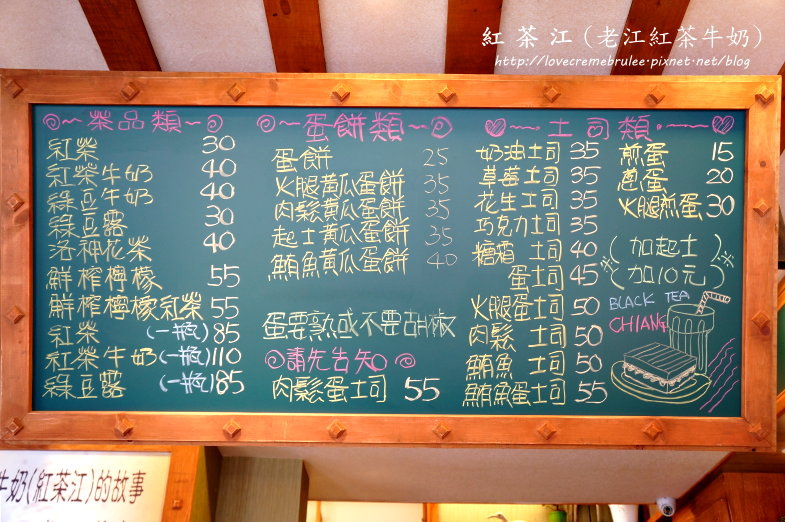 紅茶江(老江紅茶牛奶)
http://lovecremebrulee.pixnet.net/blog
茶品類
紅茶 30
紅茶牛奶 40
綠豆牛奶 40
綠豆露 30
洛神花茶 40
鮮榨檸檬 55
鮮榨檸檬紅茶 55
紅茶 (一瓶) 85
紅茶牛奶 (一瓶) 110
綠豆露 (一瓶) 85
蛋餅類
蛋餅 25
火腿黃瓜蛋餅 35
肉鬆黃瓜蛋餅 35
起士黃瓜蛋餅 35
鮪魚黃瓜蛋餅 40
蛋要熟或不要胡椒
請先告知
肉鬆蛋土司 55
土司類
奶油土司 35
草莓土司 35
花生土司 35
巧克力土司 35
糖霜 土司 40
蛋土司 45
火腿蛋土司 50
肉鬆 土司 50
鮪魚 土司 50
鮪魚蛋土司 55
煎蛋 15
蔥蛋 20
火腿煎蛋 30
(加起士)
(加10元)
BLACK TEA
CHIANG
牛奶(紅茶江)的故事